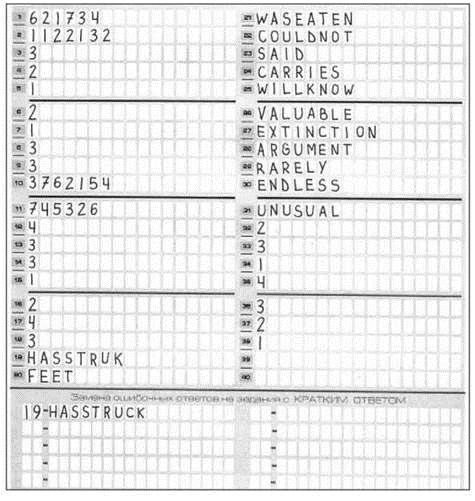 1 621734
2 1122132
3 3
4 2
5 1
6 2
7 1
8 3
9 3
10 3762154
11 745326
12 4
13 3
14 3
15 1
16 2
17 4
18 3
19 HASSTRUK
20 FEET
21 WASEATEN
22 COULDNOT
23 SAID
24 CARRIES
25 WILLKNOW
26 VALUABLE
27 EXTINCTION
28 ARGUMENT
29 RARELY
30 ENDLESS
31 UNUSUAL
32 2
33 3
34 1
35 4
36 3
37 2
38 1
39
40
Замена ошибочных ответов на задания с КРАТКИМ ОТВЕТОМ
19-HASSTRUCK